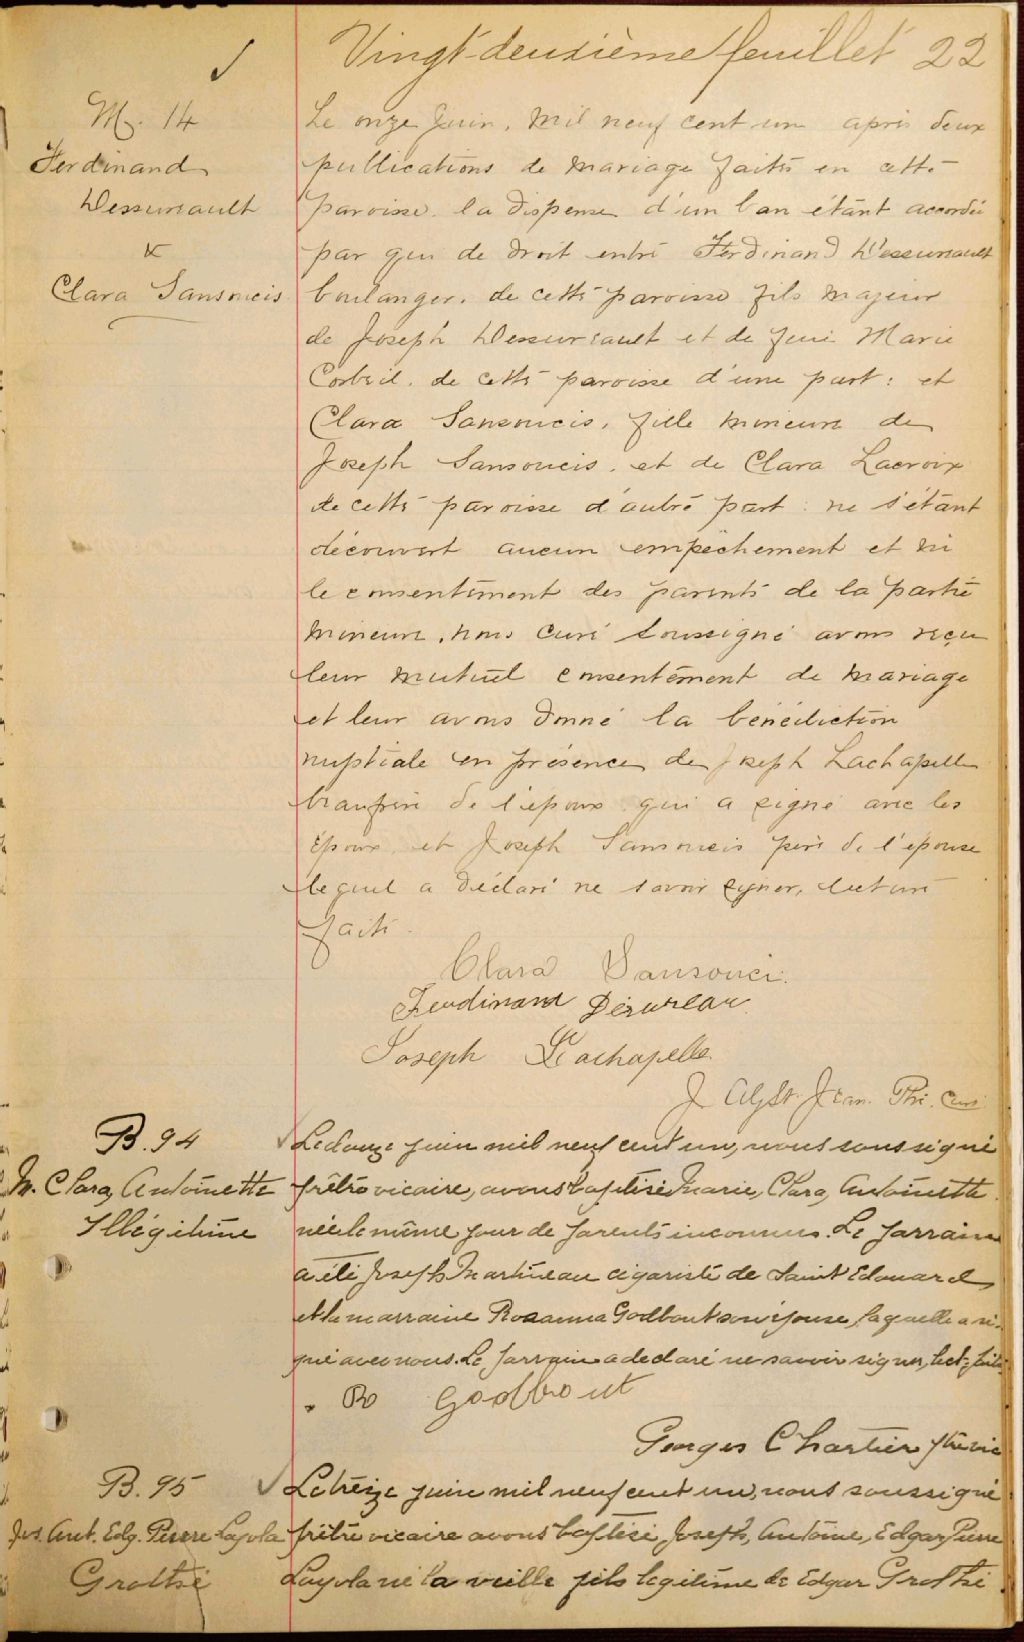 Vingt-deuxième feuillet 22
M. 14
Ferdinand
Dessureault
&
Clara Sansoucis
Le onze Juin, mil neuf cent un après deux
publications de mariage faites en cette
paroisse, la dispense d'un ban étant accordée
par qui de droit entre Ferdinand Dessureault
boulanger, de cette paroisse fils majeur
de Joseph Dessureault et de feue Marie
Corbeil, de cette paroisse d'une part: et
Clara Sansoucis, fille mineure de
Joseph Sansoucis, et de Clara Lacroix
de cette paroisse d'autre part: ne s'étant
découvert aucun empêchement et vu
le consentement des parents de la partie
mineure, nous curé soussigné avons reçu
leur mutuel consentement de mariage
et leur avons donné la bénédiction
nuptiale en présence de Joseph Lachapelle
beaufrère de l'époux qui a signé avec les
époux, et Joseph Sansoucis père de l'épouse
lequel a déclaré ne savoir signer, lecture
faite.
Clara Sansouci
Ferdinand Désureau
Joseph Lachapelle
J Alp St. Jean. Ptre. Curé
B. 94
M. Clara, Antoinette
Illégitime
Le douze juin mil neuf cent un, nous soussigné
prêtre vicaire, avons baptisé Marie, Clara, Antoinette
née le même jour de parents inconnus. Le parrain
a été Joseph Martineau cigariste de Saint Edouard
et la marraine Rosanna Godbout son épouse, laquelle a si-
gné avec nous. Le parrain a declaré ne savoir signer, lect. faite
R Godbout
Georges Chartier ptre vic
B. 95
Jos. Ant. Edg. Pierre Layola
Grothé
Le treize juin mil neuf cent un, nous soussigné
prêtre vicaire avons baptisé, Joseph, Antoine, Edgar Pierre
Layola né la veille fils legitime de Edgar Grothé